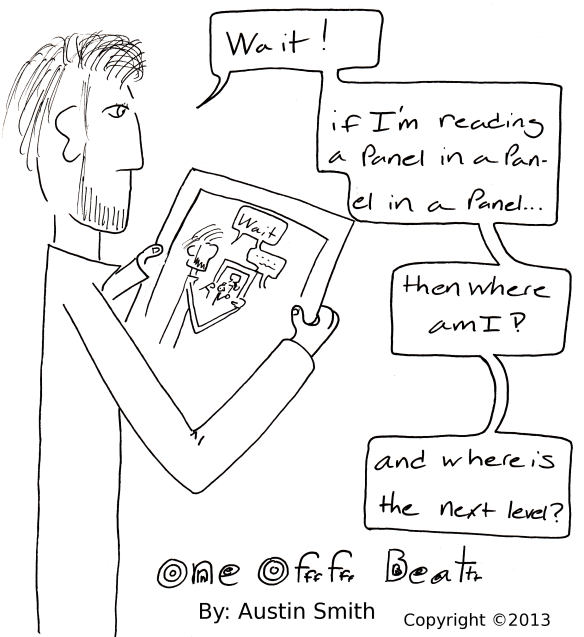 Wait!
if I'm reading
a Panel in a Pan-
el in a Panel...
then where
am I?
and where is
the next level?
Wait
One Offf Beat
By: Austin Smith
Copyright ©2013